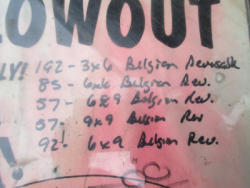 LOWOUT
LY! 192 - 3x6 Belgian Reversable
85 - 6x6 Belgian Rev.
57 - 689 Belgian Rev.
57 - 9x9 Belgian Rev
92 - 6x9 Belgian Rev.